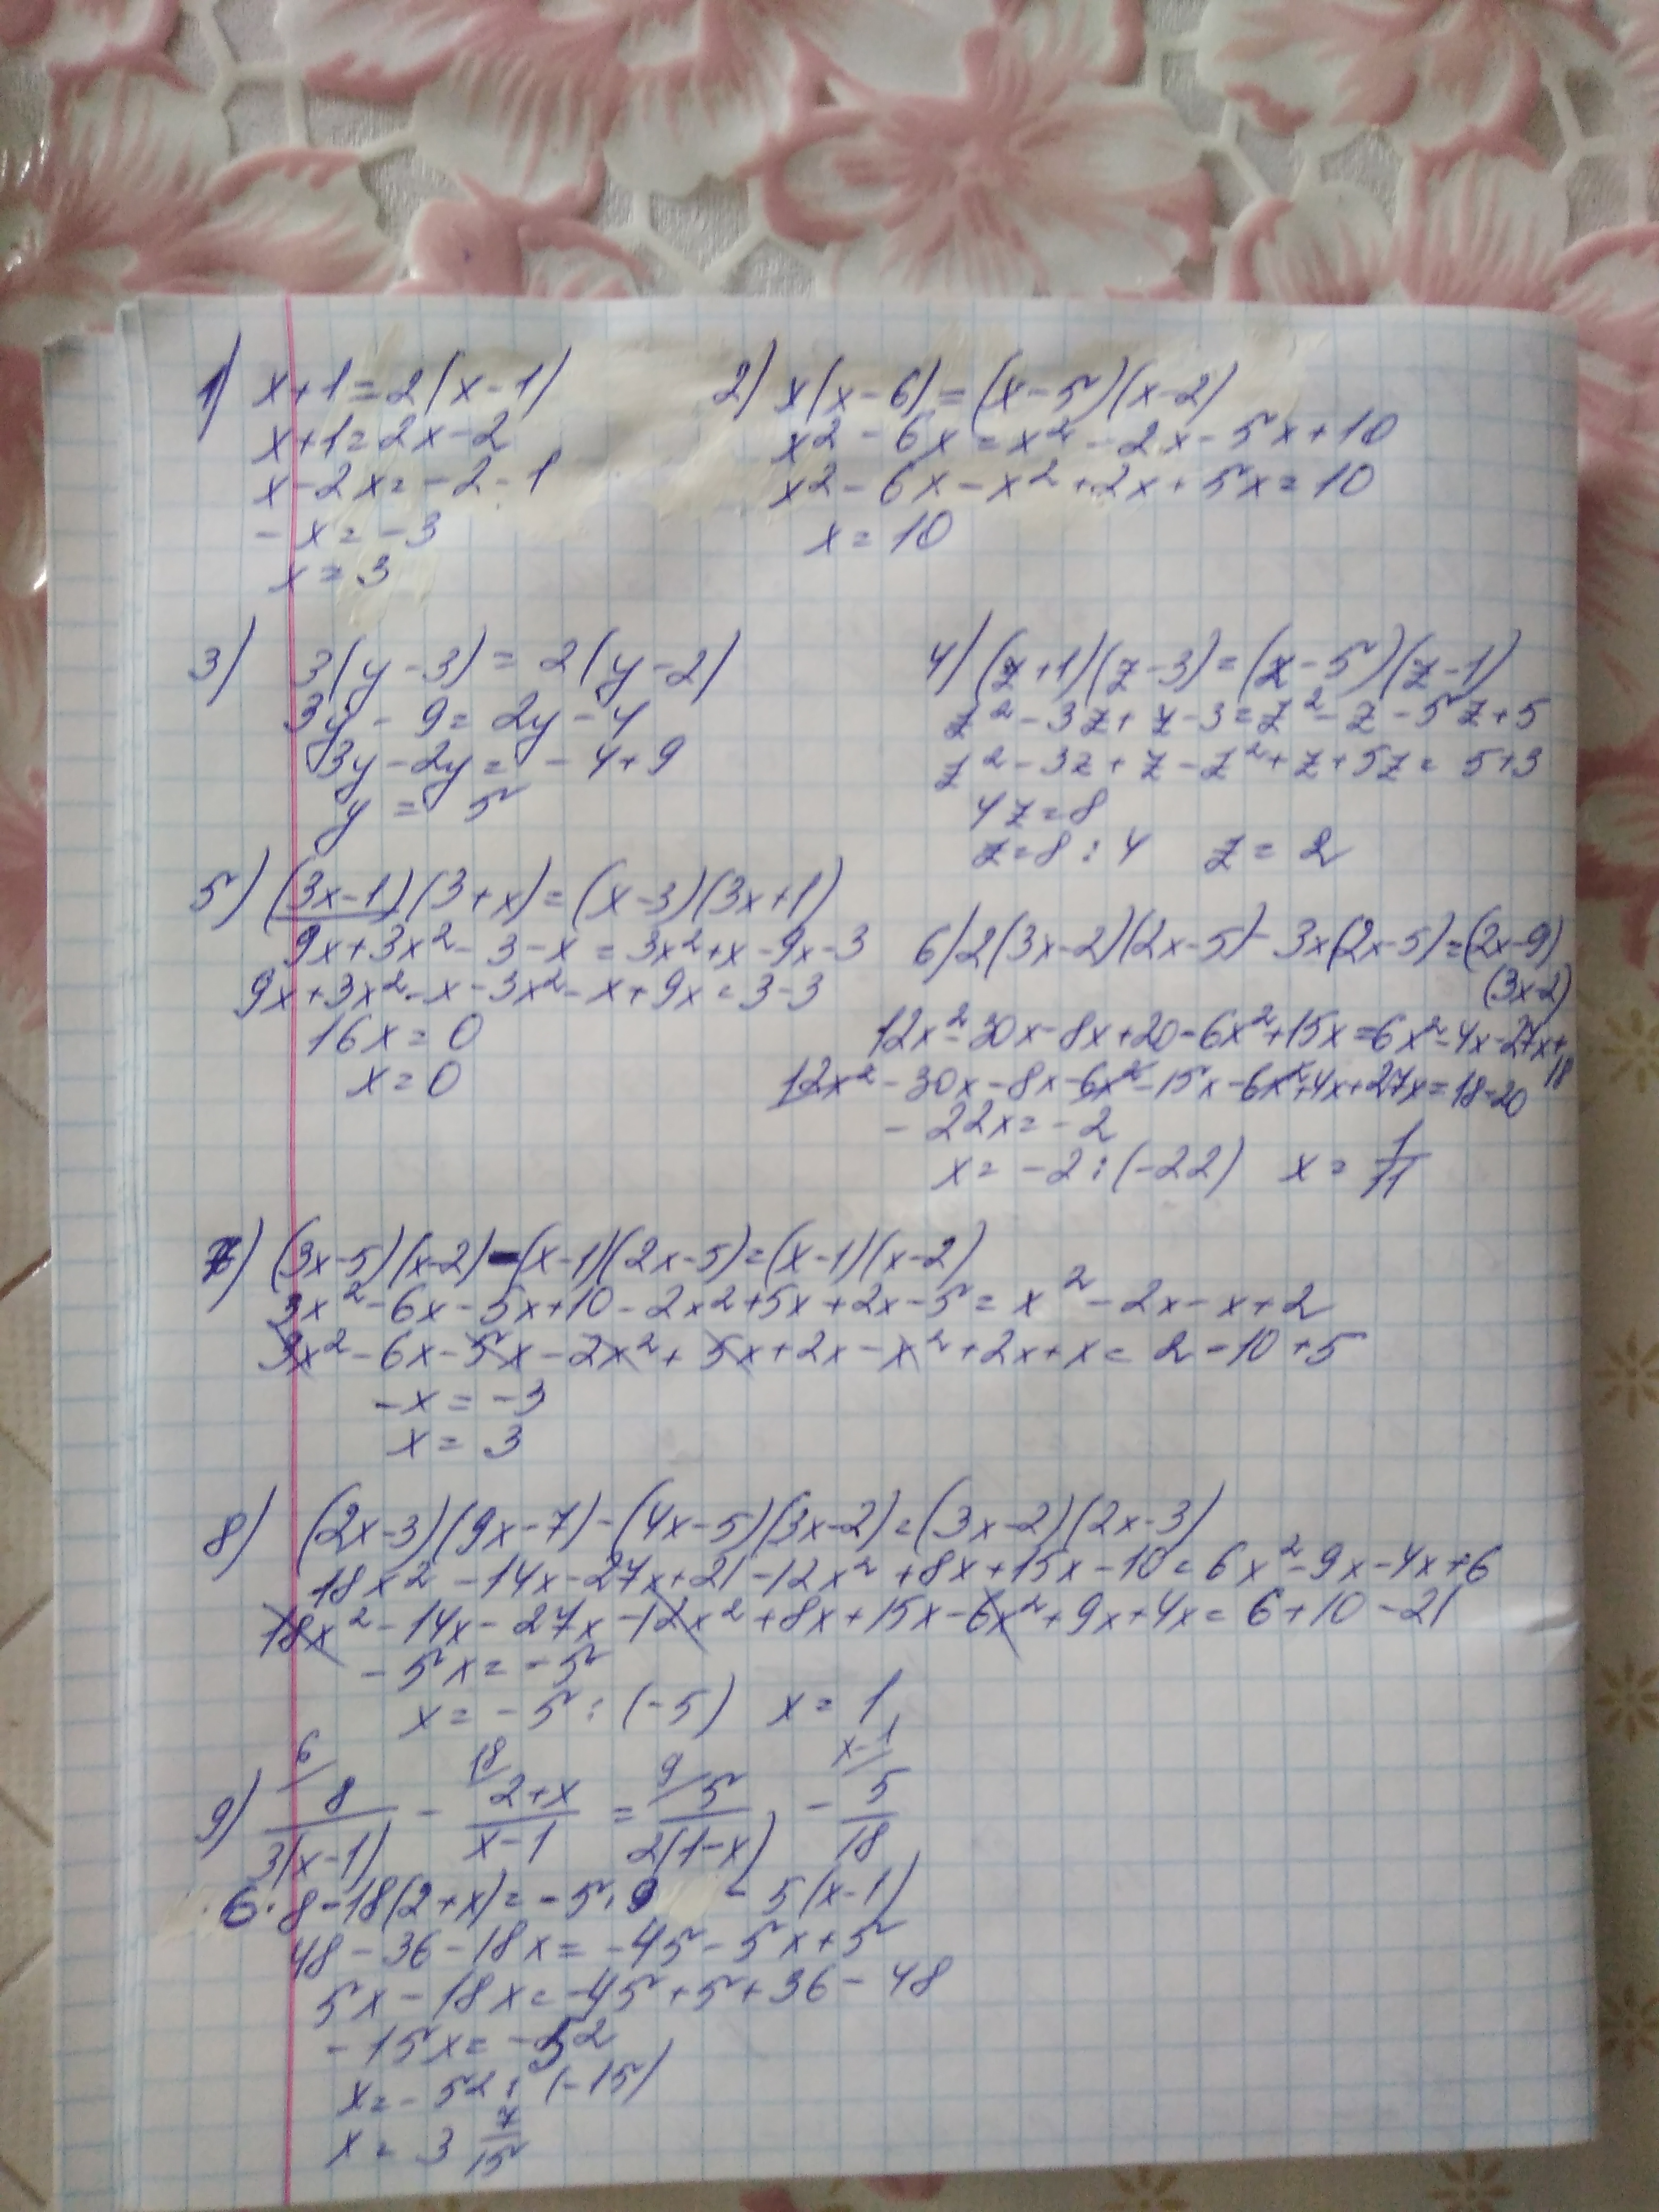 1) x+1=2(x-1)
x+1=2x-2
x-2x=-2-1
-x=-3
x=3
2) x(x-6)=(x-5)(x-2)
x2-6x=x²-2x-5x+10
x2-6x-x²+2x+5x=10
x=10
3) 3(y-3)=2(y-2)
3y-9=2y-4
3y-2y=-4+9
y=5
4) (z+1)(z-3)=(z-5)(z-1)
z²-3z+z-3=z²-z-5z+5
z²-3z+z-z²+z+5z=5+3
4z=8
z=8:4 z=2
5) (3x-1)(3+x)=(x-3)(3x+1)
9x+3x²-3-x=3x²+x-9x-3
9x+3x²-x-3x²-x+9x=3-3
16x=0
x=0
6) 2(3x-2)(2x-5)-3x(2x-5)=(2x-9)
(3x-2)
12x²-30x-8x+20-6x²+15x=6x²-4x-27x+
18
12x²-30x-8x-6x²-15x-6x²+4x+27x=18-20
-22x=-2
x=-2:(-22) x=1/11
7) (3x-5)(x-2)-(x-1)(2x-5)=(x-1)(x-2)
3x²-6x-5x+10-2x²+5x+2x-5=x²-2x-x+2
3x²-6x-5x-2x²+5x+2x-x²+2x+x=2-10+5
-x=-3
x=3
8) (2x-3)(9x-7)-(4x-5)(3x-2)=(3x-2)(2x-3)
18x²-14x-27x+21-12x²+8x+15x-10=6x²-9x-4x+6
18x²-14x-27x-12x²+8x+15x-6x²+9x+4x=6+10-21
-5x=-5
x=-5:(-5) x=1
6/ 18/ 9/ x-1/
9) 8/3(x-1) - 2+x/x-1 = 5/2(1-x) - 5/18
6·8-18(2+x)=-5·9 -5(x-1)
48-36-18x=-45-5x+5
5x-18x=-45+5+36-48
-15x=-52
x=-52:(-15)
x=3 7/15